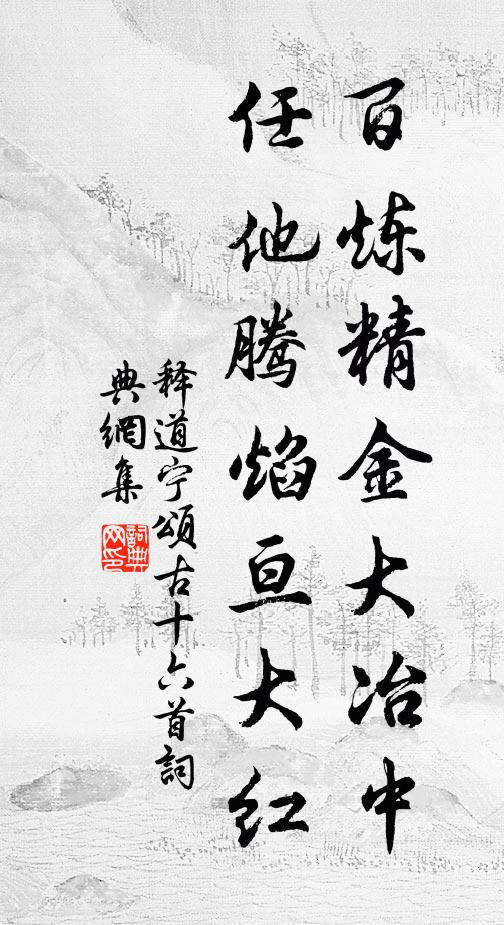 百炼精金大冶中
任他腾焰亘大红
释道宁颂古十六首词
典網集
詞典網印